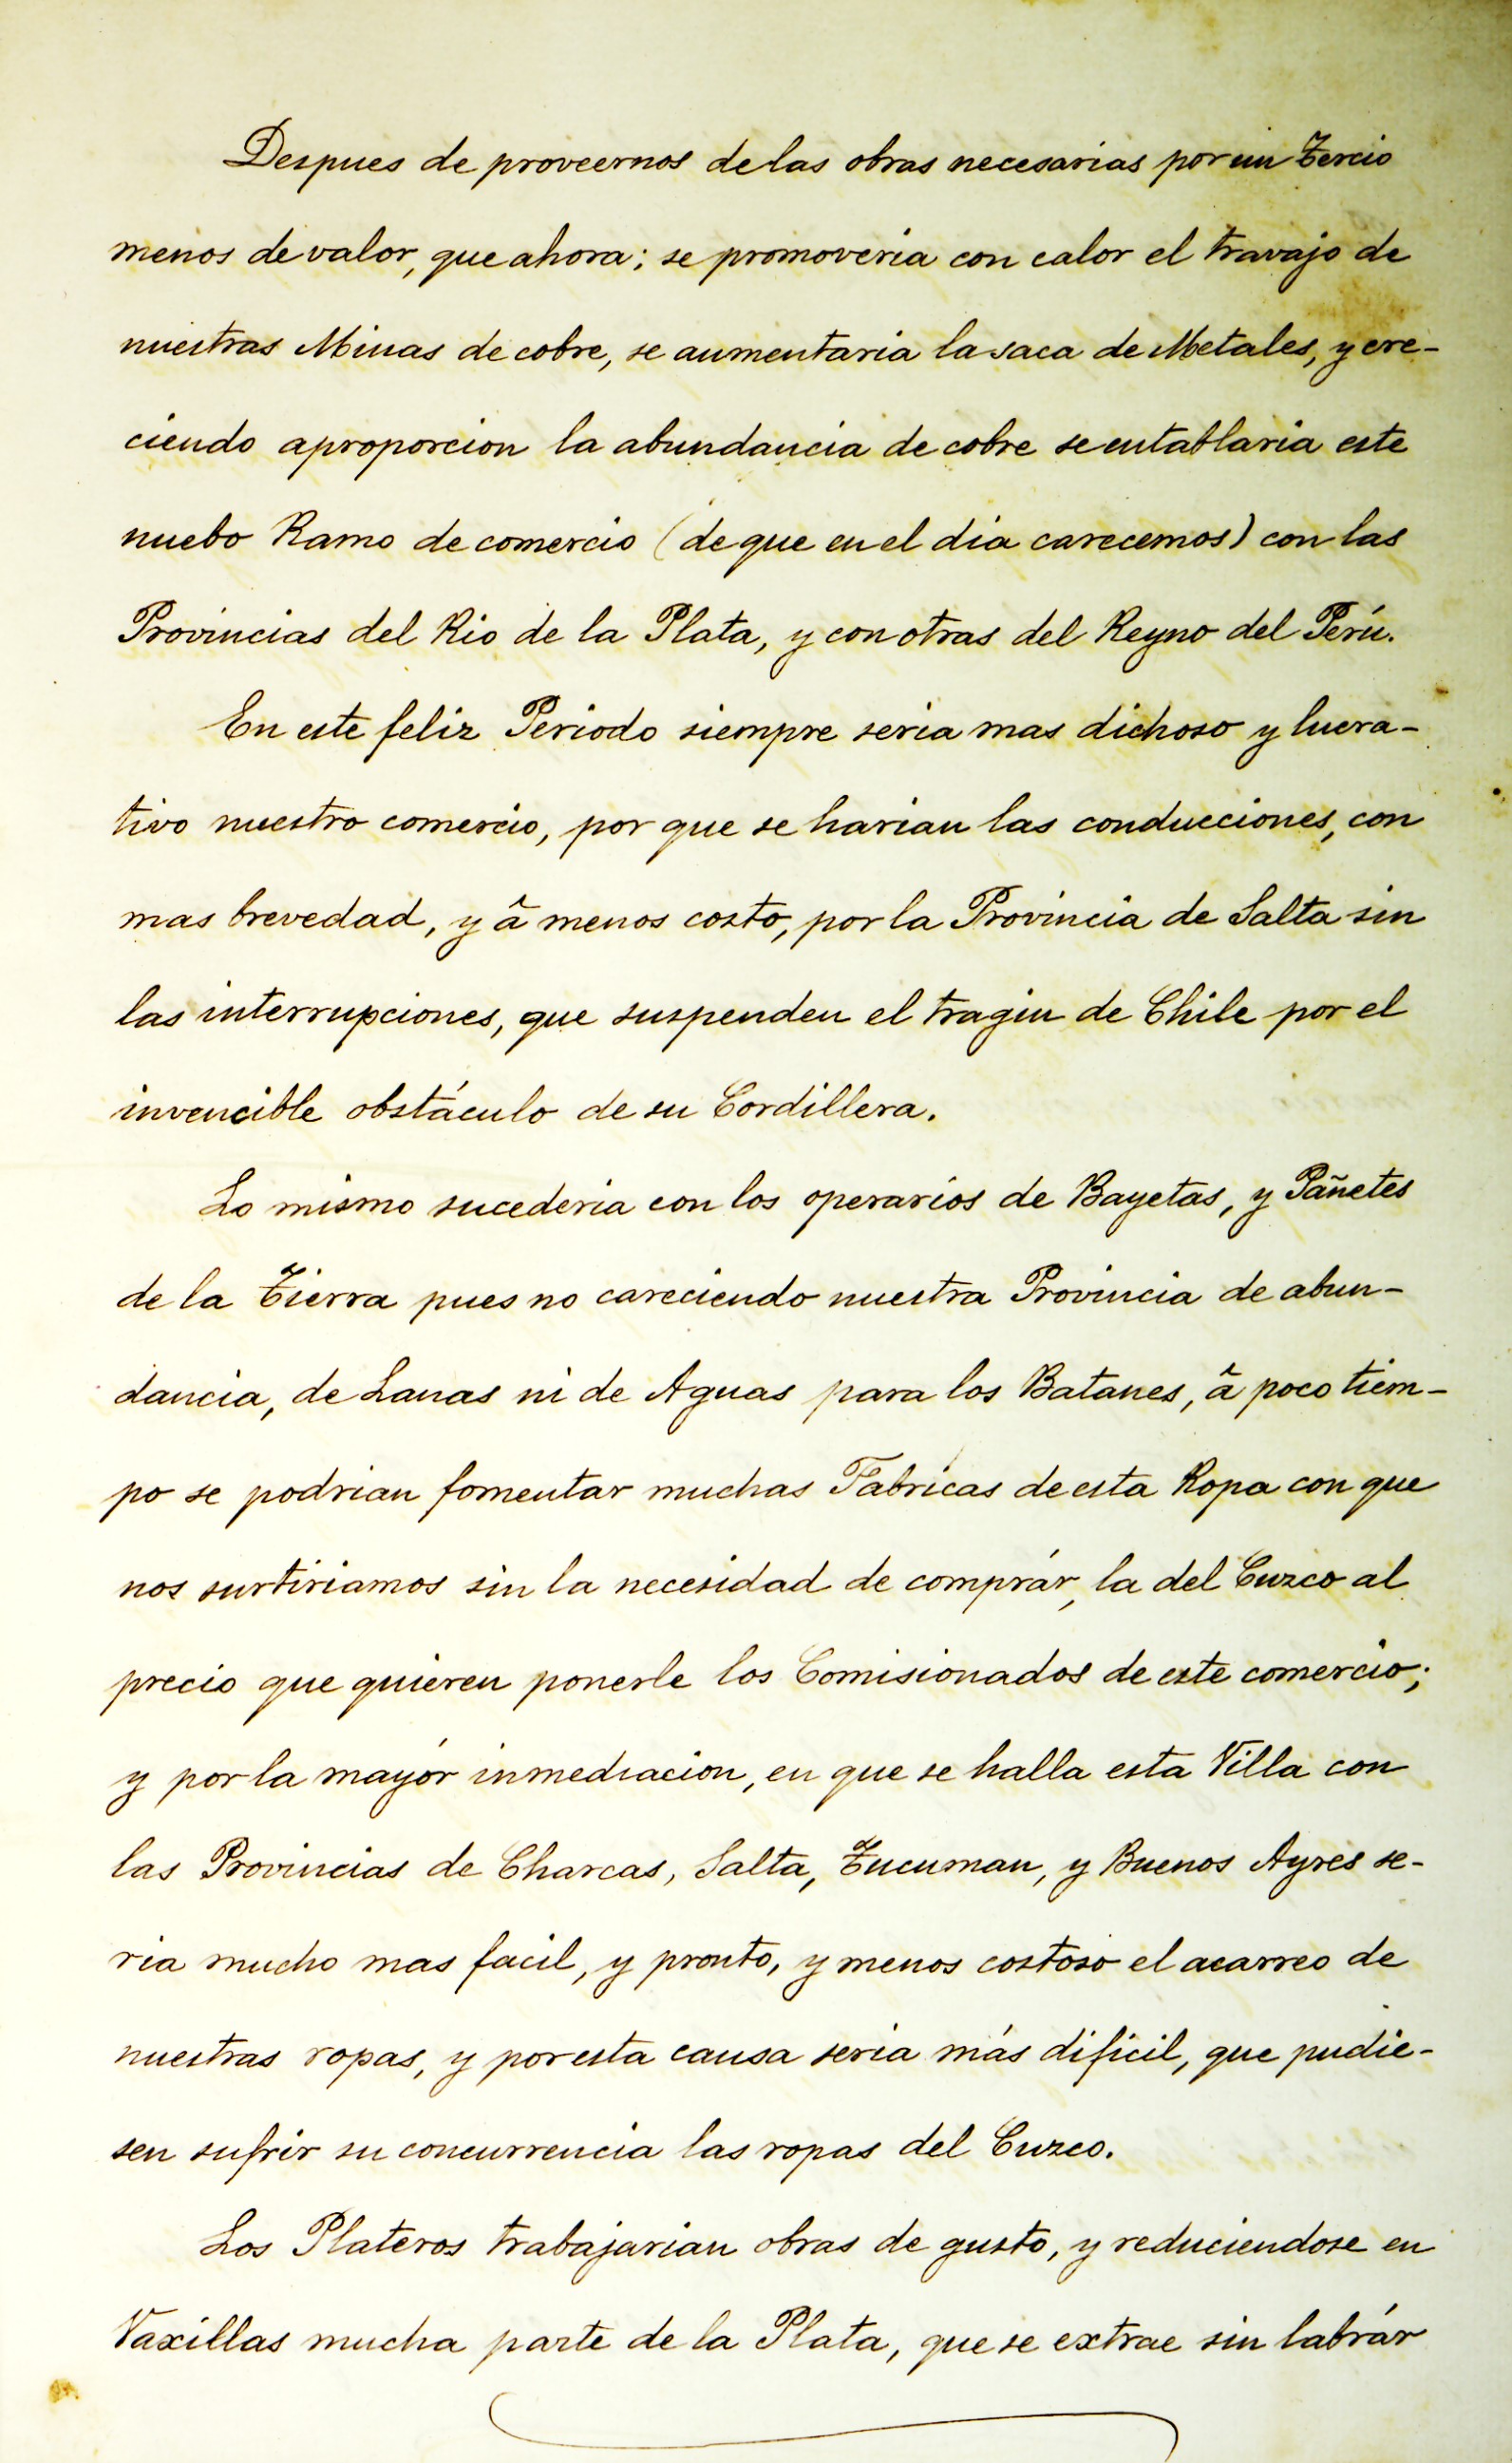 Despues de proveernos de las obras necesarias por un Tercio
menos de valor, que ahora; se promoveria con calor el travajo de
nuestras Minas de cobre, se aumentaria la saca de Metales, y cre-
ciendo aproporcion la abundancia de cobre se entablaria este
nuebo Ramo de comercio (de que en el dia carecemos) con las
Provincias del Rio de la Plata, y con otras del Reyno del Perú.
En este feliz Periodo siempre seria mas dichoso y lucra-
tivo nuestro comercio, por que se harian las conducciones, con
mas brevedad, y â menos costo, por la Provincia de Salta sin
las interrupciones, que suspenden el tragin de Chile por el
invencible obstáculo de su Cordillera.
Lo mismo sucederia con los operarios de Bayetas, y Pañetes
de la Tierra pues no careciendo nuestra Provincia de abun-
dancia, de Lanas ni de Aguas para los Batanes, â poco tiem-
po se podrian fomentar muchas Fabricas de esta Ropa con que
nos surtiriamos sin la necesidad de comprár, la del Cuzco al
precio que quieren ponerle los Comisionados de este comercio;
y por la mayór inmediacion, en que se halla esta Villa con
las Provincias de Charcas, Salta, Tucuman, y Buenos Ayres se-
ria mucho mas facil, y pronto, y menos costoso el acarreo de
nuestras ropas, y por esta causa seria más dificil, que pudie-
sen sufrir su concurrencia las ropas del Cuzco.
Los Plateros trabajarian obras de gusto, y reduciendose en
Vaxillas mucha parte de la Plata, que se extrae sin labrár